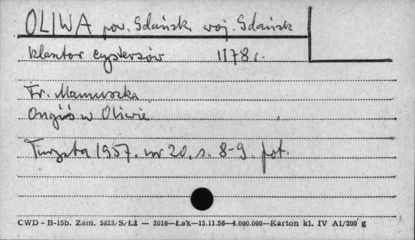 OLIWA pow. Gdańsk woj. Gdańsk
klasztor cystersów 1178 r.
Fr. Mamuszka
Ongiś w Oliwie
Turysta 1957. nr 20. s. 8-9. fot.
CWD - B-15b. Zam. 5623/S/ŁŻ — 3016—Łak—15.11.56—4.000.000—Karton kl. IV A1/200 g